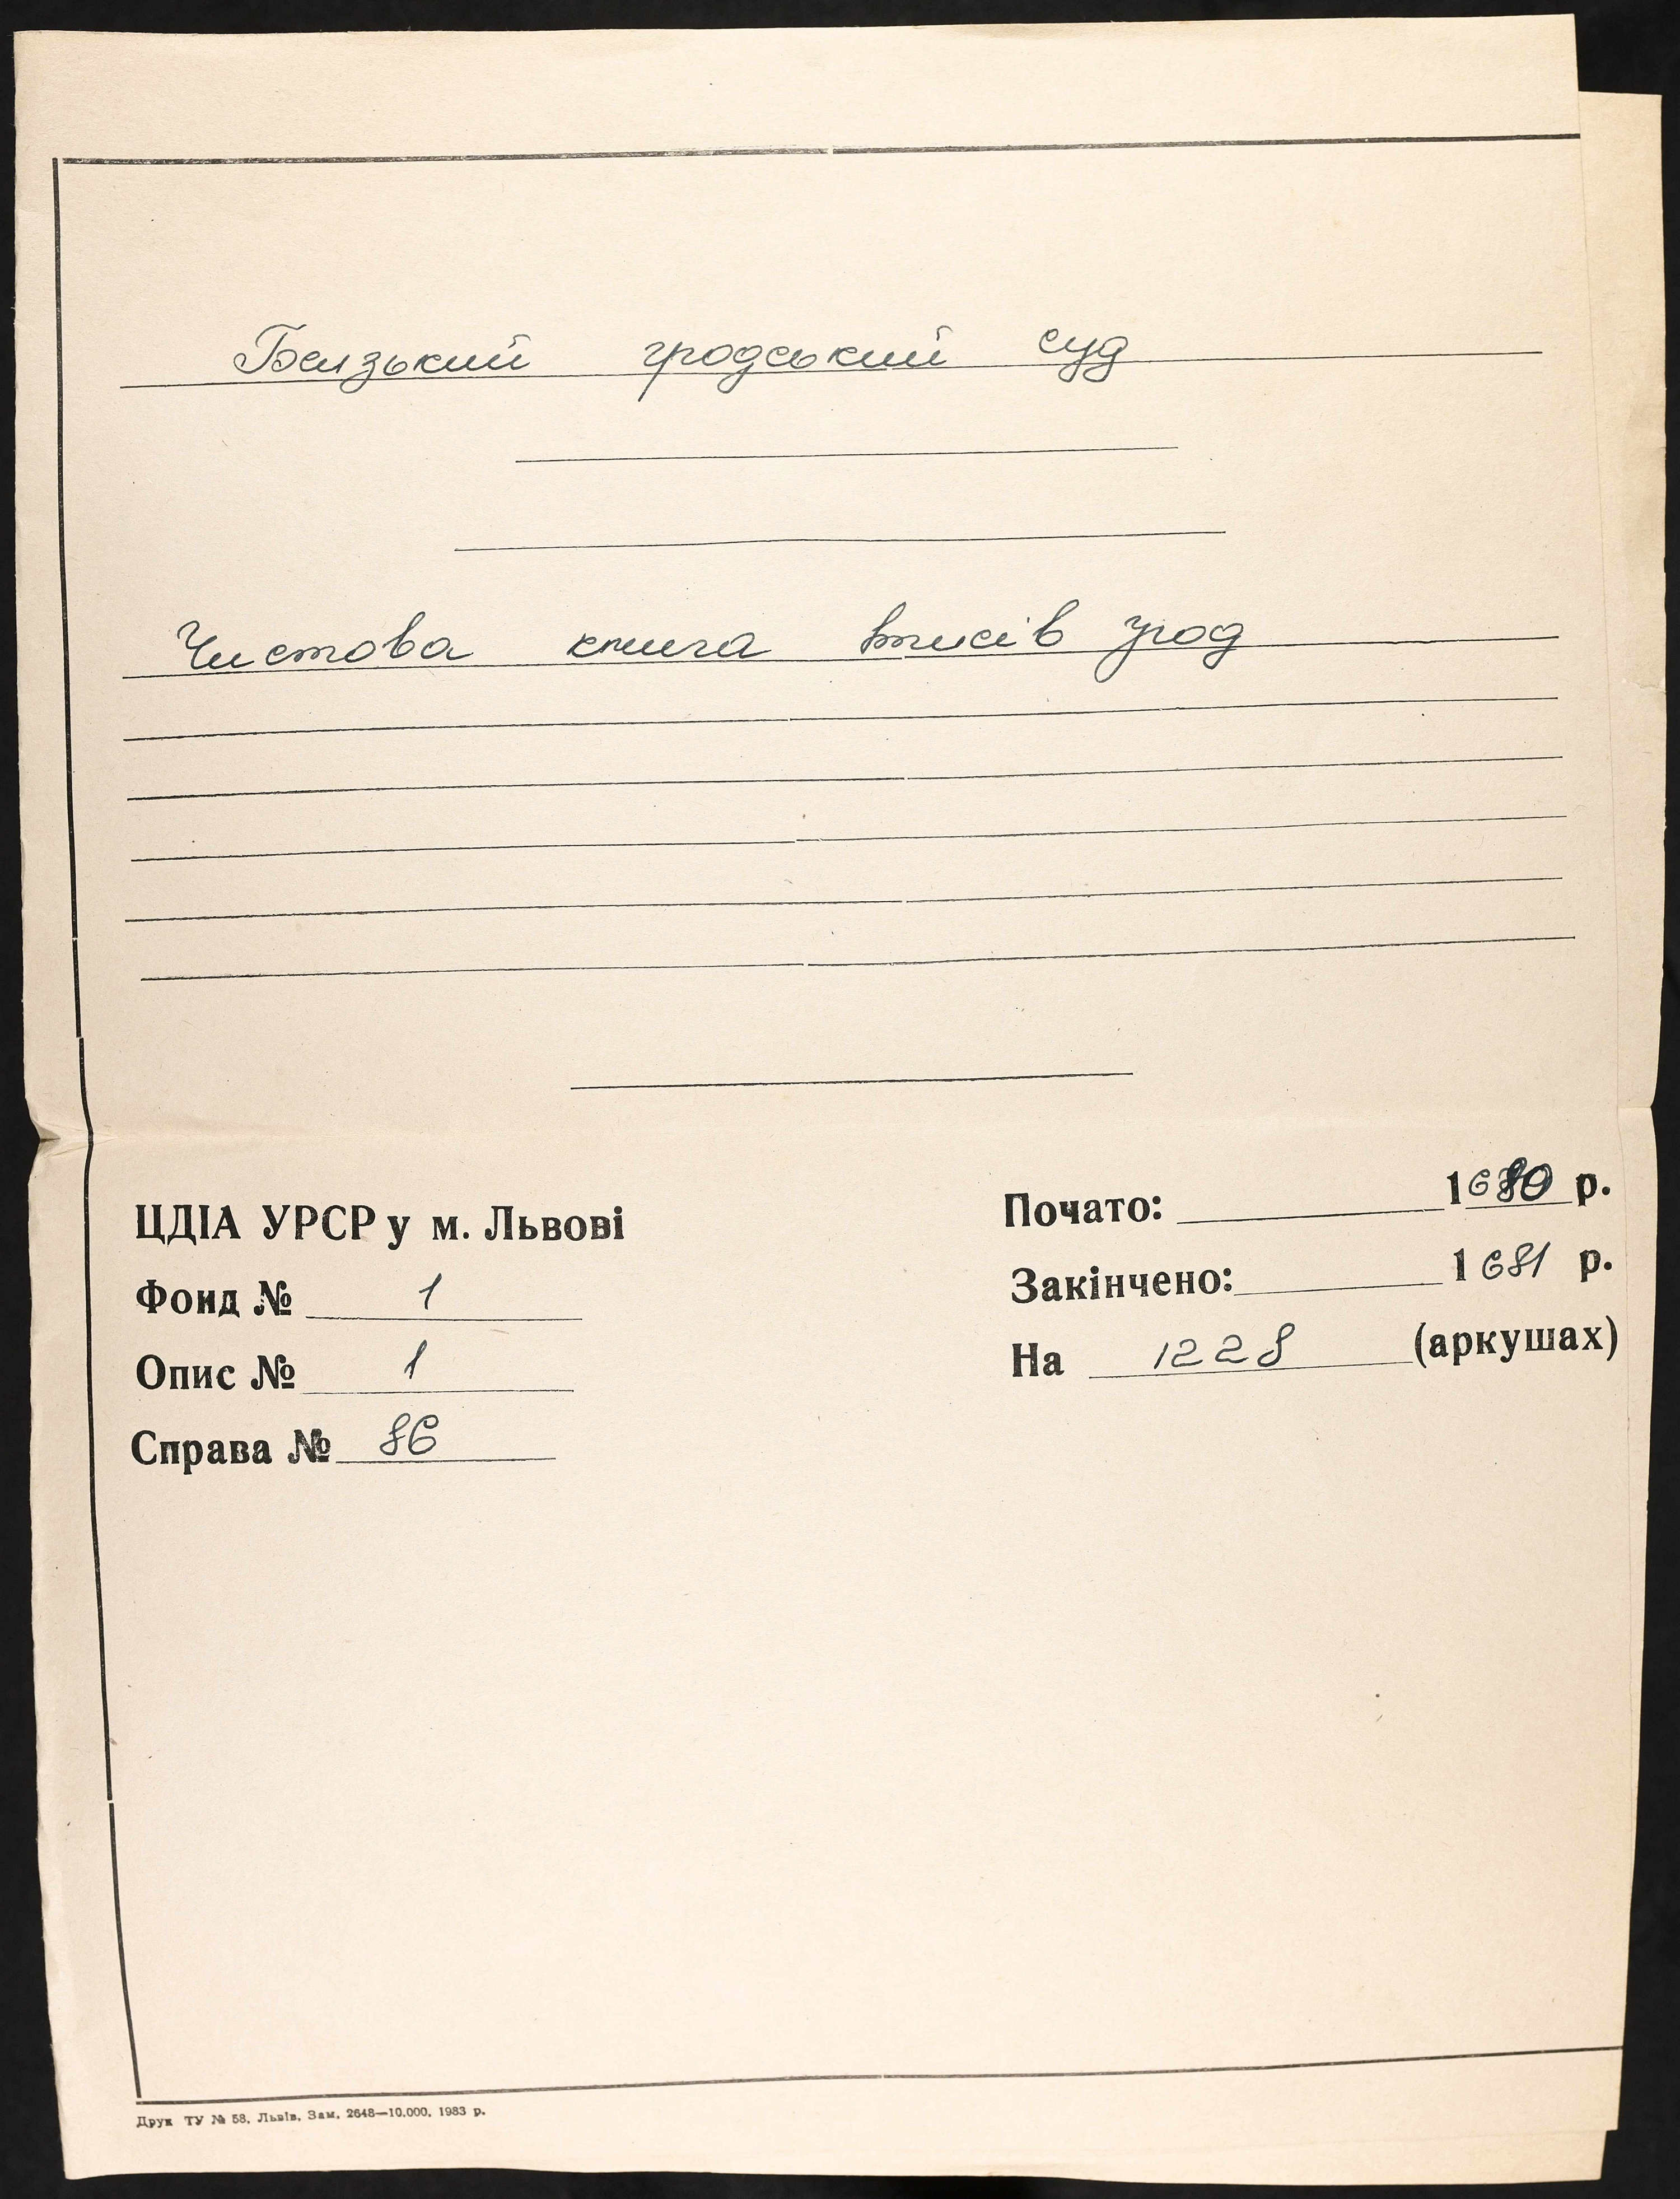 Белзький гродський суд
Чистова книга вписів угод
ЦДІА УРСР у м. Львові
Фонд № 1
Опис № 1
Справа № 86
Почато: 1680 р.
Закінчено: 1681 р.
На 1228 (аркушах)
Друк ТУ № 58, Львів. Зам. 2648—10.000. 1983 р.